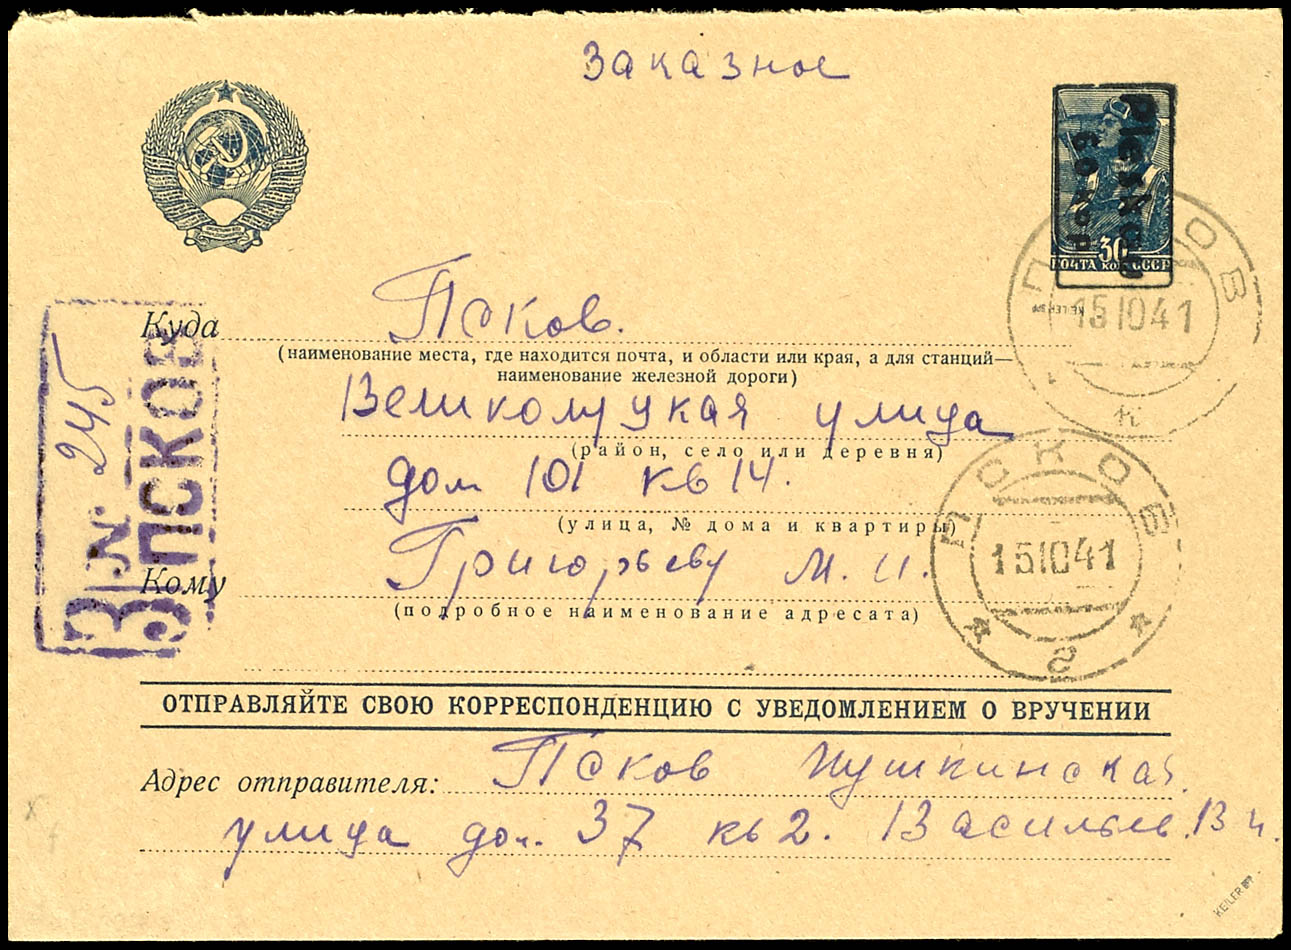 Заказное
Pleskau
60 коп
30
ПОЧТА КОП. СССР
ПСКОВ
15 10 41
KEILER BPP
Куда Псков.
(наименование места, где находится почта, и области или края, а для станций—
наименование железной дороги)
Великолуцкая улица
(район, село или деревня)
дом 101 кв 14.
(улица, № дома и квартиры)
Кому Григорьеву М. И.
(подробное наименование адресата)
З ПСКОВ
№ 245
ПСКОВ
15 10 41
2
ОТПРАВЛЯЙТЕ СВОЮ КОРРЕСПОНДЕНЦИЮ С УВЕДОМЛЕНИЕМ О ВРУЧЕНИИ
Адрес отправителя: Псков Пушкинская
улица дом. 37 кв 2. Васильев.
KEILER BPP